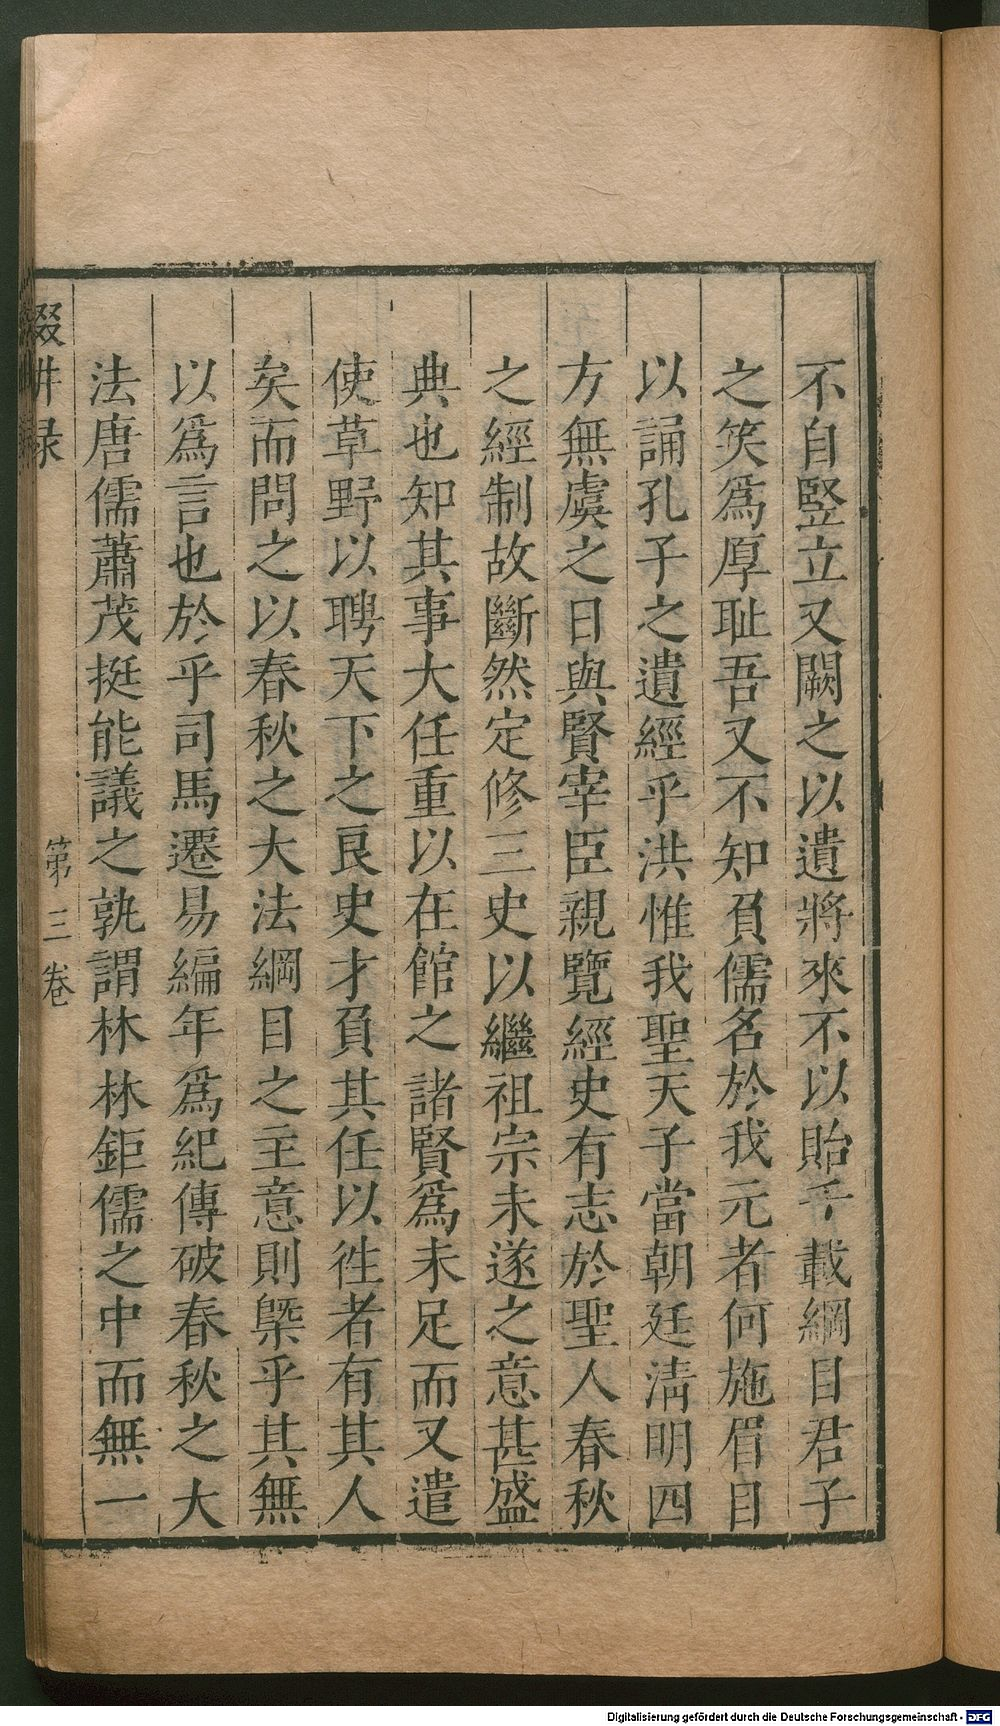 不自竪立又闕之以遺將來不以貽千載綱目君子
之笑爲厚耻吾又不知負儒名於我元者何施眉目
以誦孔子之遺經乎洪惟我聖天子當朝廷淸明四
方無虞之日與賢宰臣親覽經史有志於聖人春秋
之經制故斷然定修三史以繼祖宗未遂之意甚盛
典也知其事大任重以在館之諸賢爲未足而又遣
使草野以聘天下之良史才負其任以徃者有其人
矣而問之以春秋之大法綱目之主意則槩乎其無
以爲言也於乎司馬遷易編年爲紀傳破春秋之大
法唐儒蕭茂挺能議之孰謂林林鉅儒之中而無一
輟耕录
第三卷
Digitalisierung gefördert durch die Deutsche Forschungsgemeinschaft - DFG